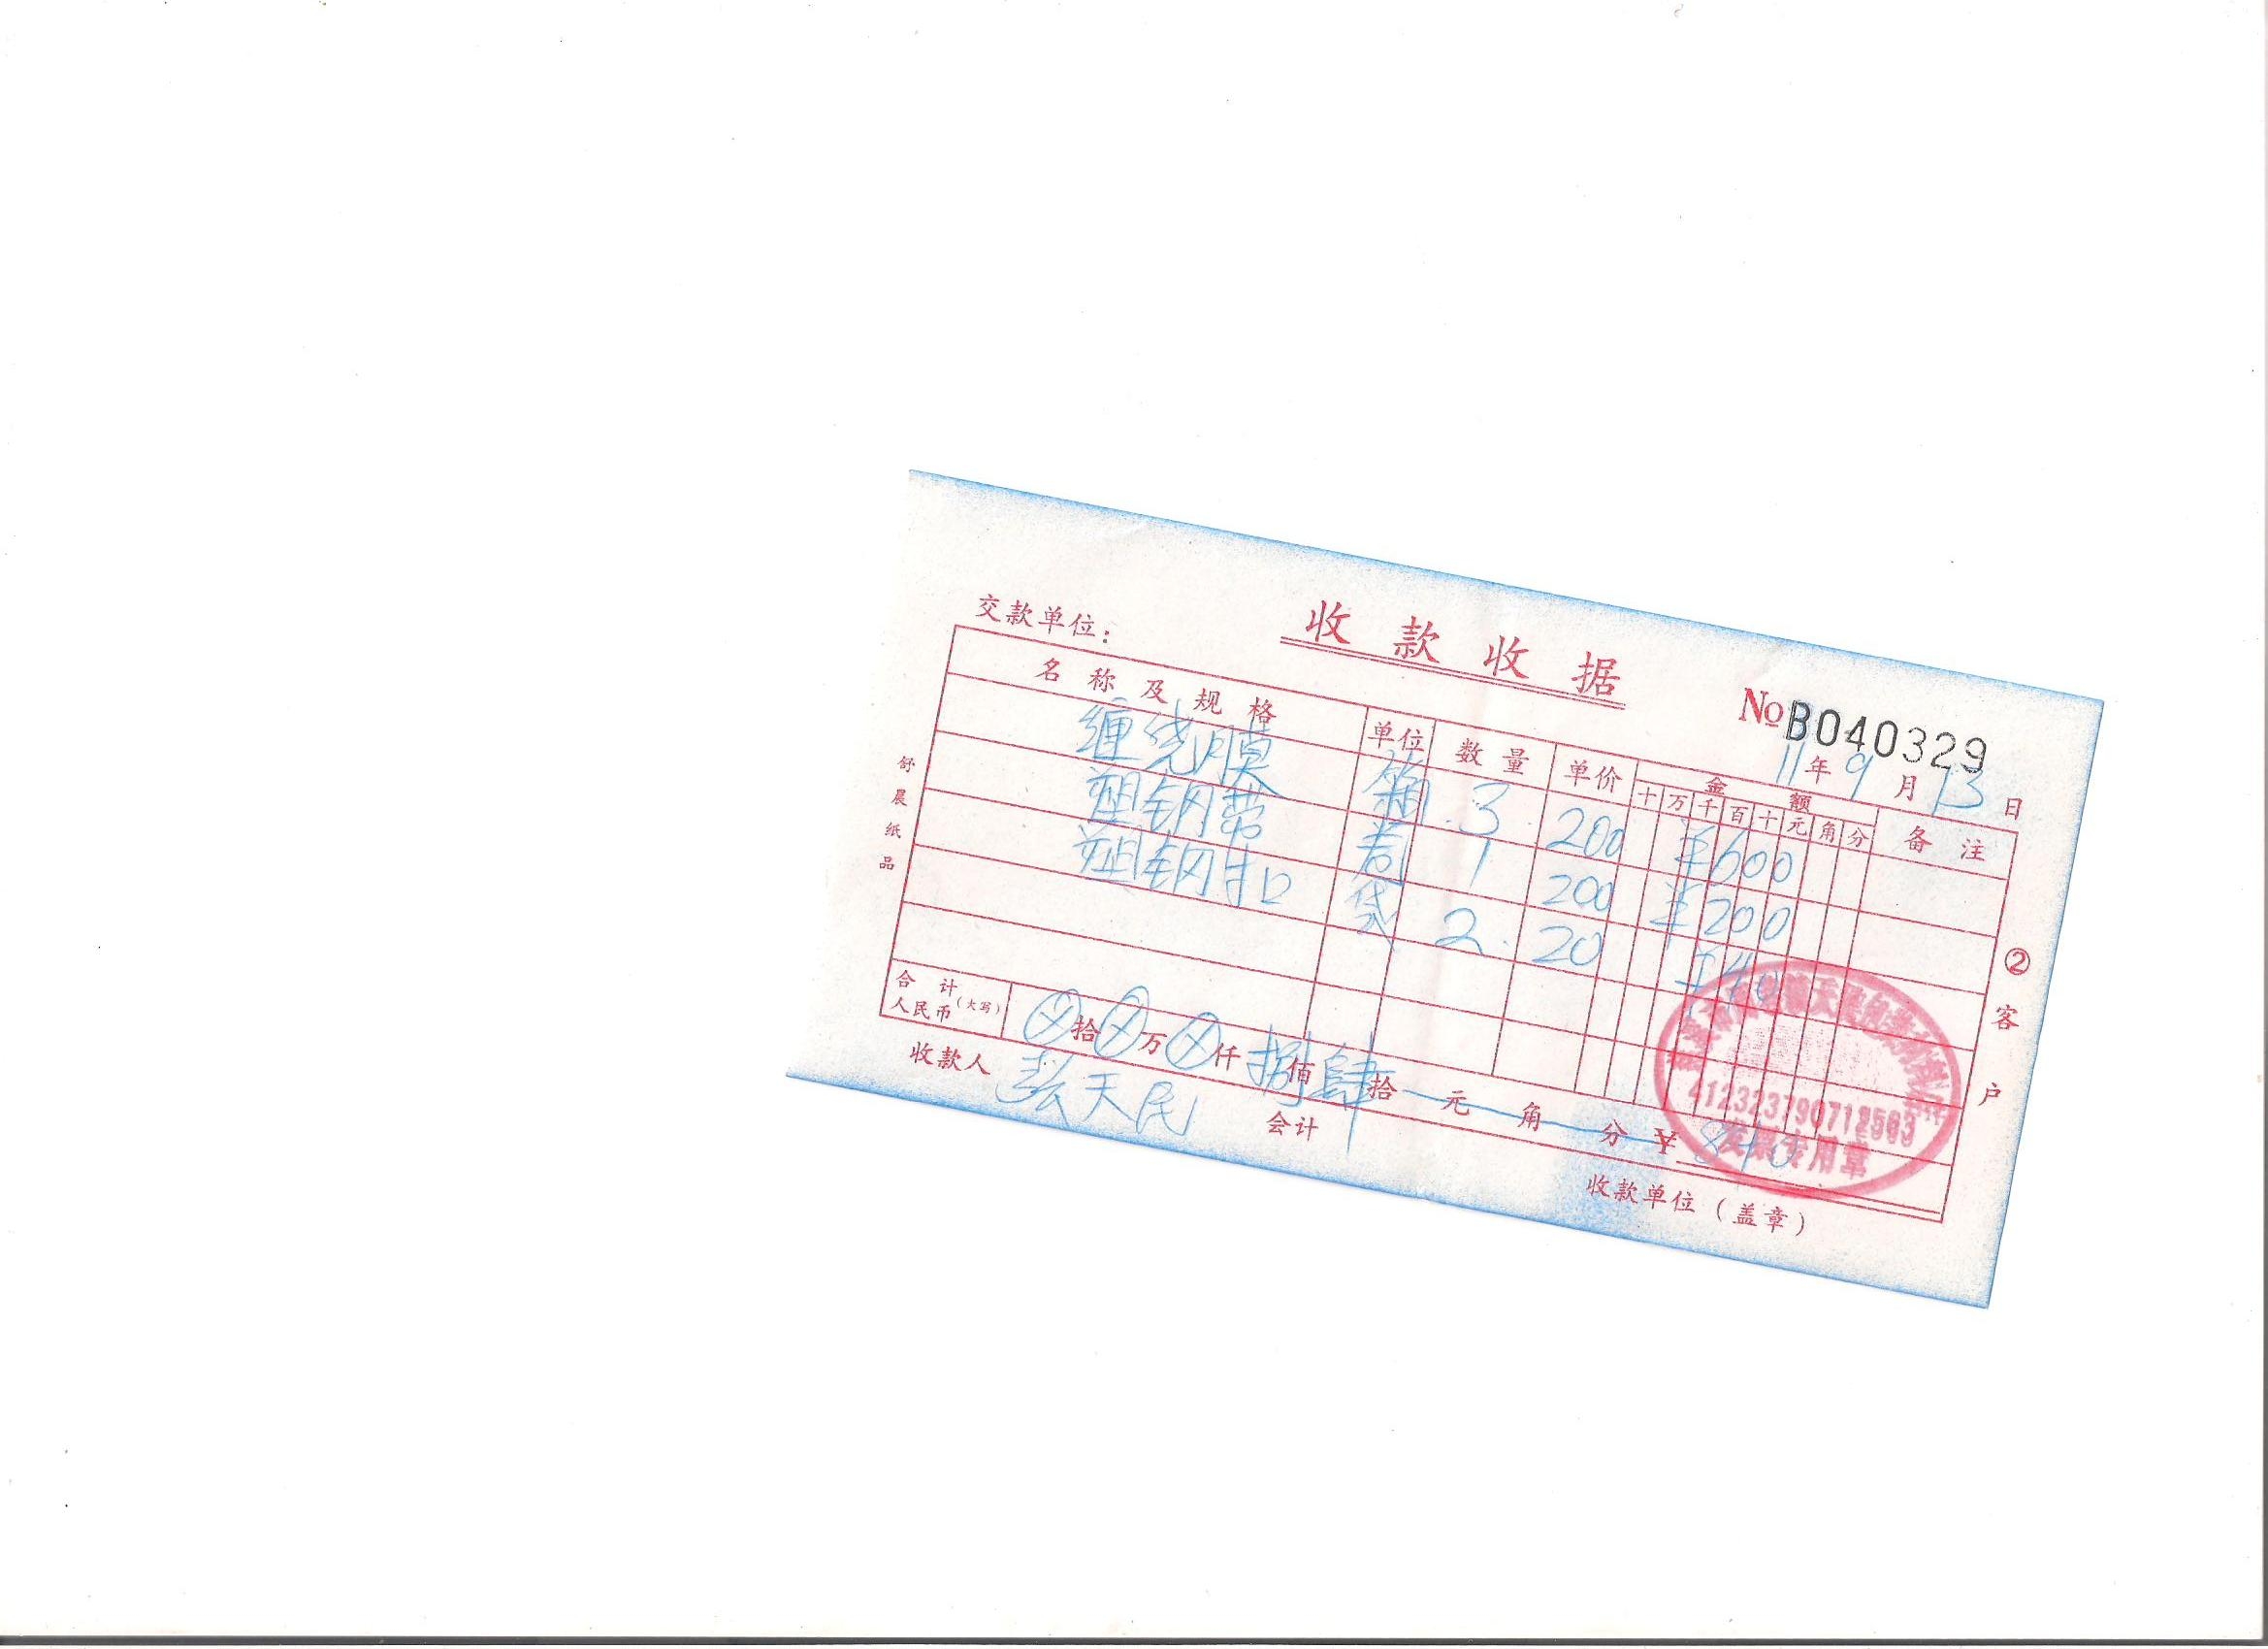 收款收据
交款单位：
No B040329
11年9月13日
名称及规格 单位 数量 单价 金额 备注
十万千百十元角分
缠绕膜 箱 3 200 ¥600
塑钢带 卷 1 200 ¥200
塑钢扣 袋 2 20 ¥40
合计人民币（大写） ⊗拾⊗万⊗仟捌佰肆拾元角分 ¥840
收款人 天民 会计 收款单位（盖章）
舒晨纸品
②客户
412323790712563
发票专用章